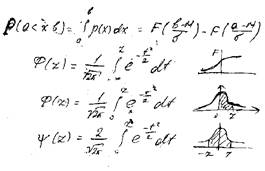 P(a<x<b) = ∫ₐᵇ p(x)dx = F((b-M)/σ) - F((a-M)/σ)
φ(z) = 1/√2π ∫₋∞ᶻ e^(-t²/2) dt
φ(z) = 1/√2π ∫₀ᶻ e^(-t²/2) dt
0 z
ψ(z) = 2/√2π ∫₀ᶻ e^(-t²/2) dt
-z z